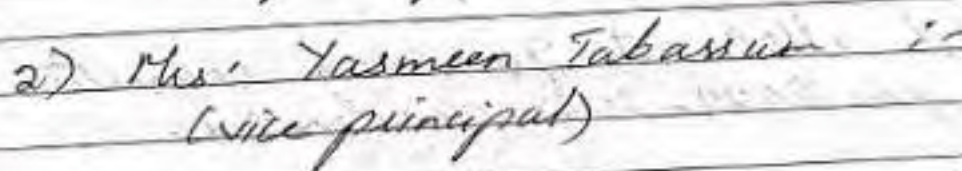 2) Mrs. Yasmeen Tabassum :-
(vice principal)